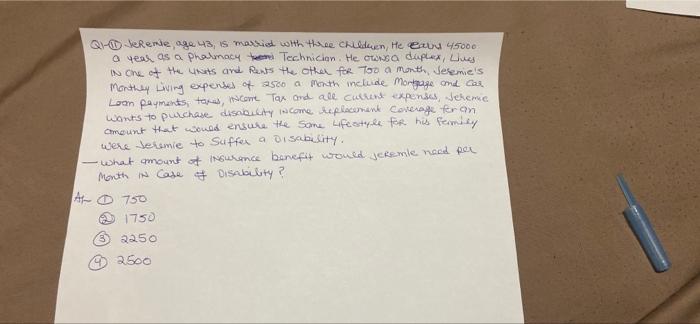 Q1-⑪ Jeremie, age 43, is married with three children, He earns 45000
a year as a pharmacy Technician. He owns a duplex, Lives
in one of the units and Rents the other for 750 a month, Jeremie's
Monthly Living expenses of 2500 a month include Mortgage and Car
Loan payments, taxes, income Tax and all current expenses, Jeremie
wants to purchase disability income replacement Coverage for an
amount that would ensure the same Lifestyle for his family
were Jeremie to Suffer a Disability.
— what amount of insurance benefit would Jeremie need per
Month in Case of Disability?
A- ① 750
② 1750
③ 2250
④ 2500